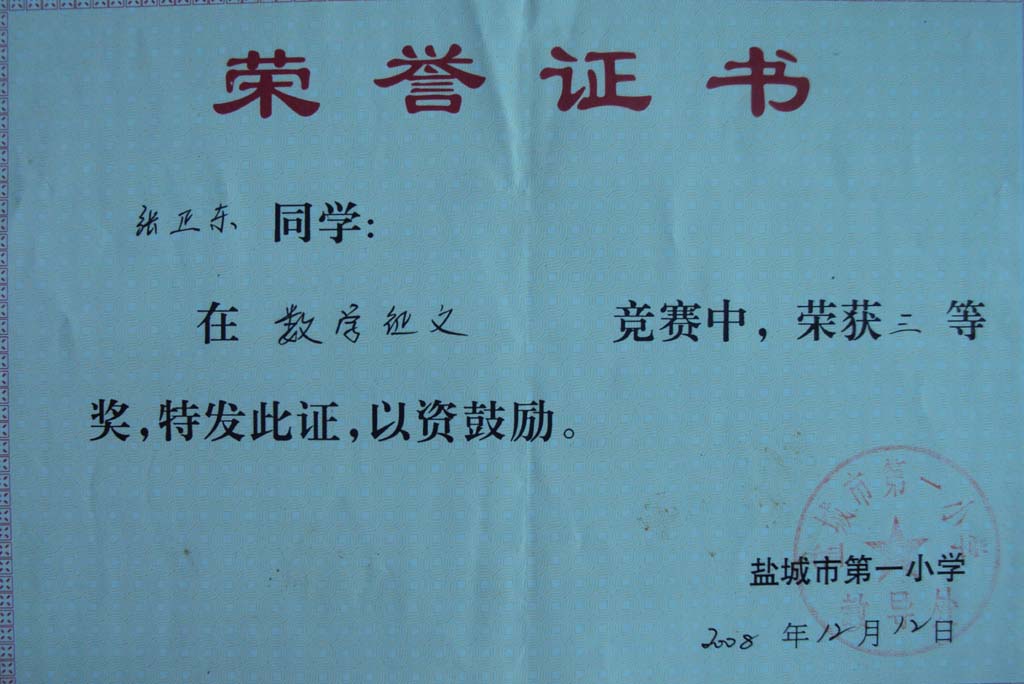 荣誉证书
张正东 同学：
在 数学征文 竞赛中，荣获三等
奖，特发此证，以资鼓励。
盐城市第一小学
教导处
盐城市第一小学
2008 年 12 月 12 日